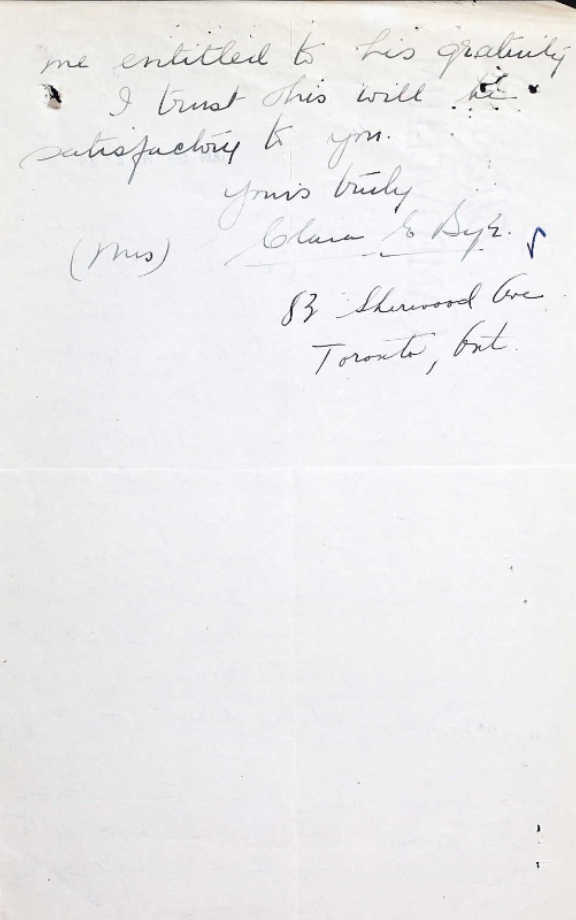 me entitled to his gratuity
I trust this will be
satisfactory to you.
yours truly
(Mrs) Clara E
83 Sherwood Ave
Toronto, Ont.